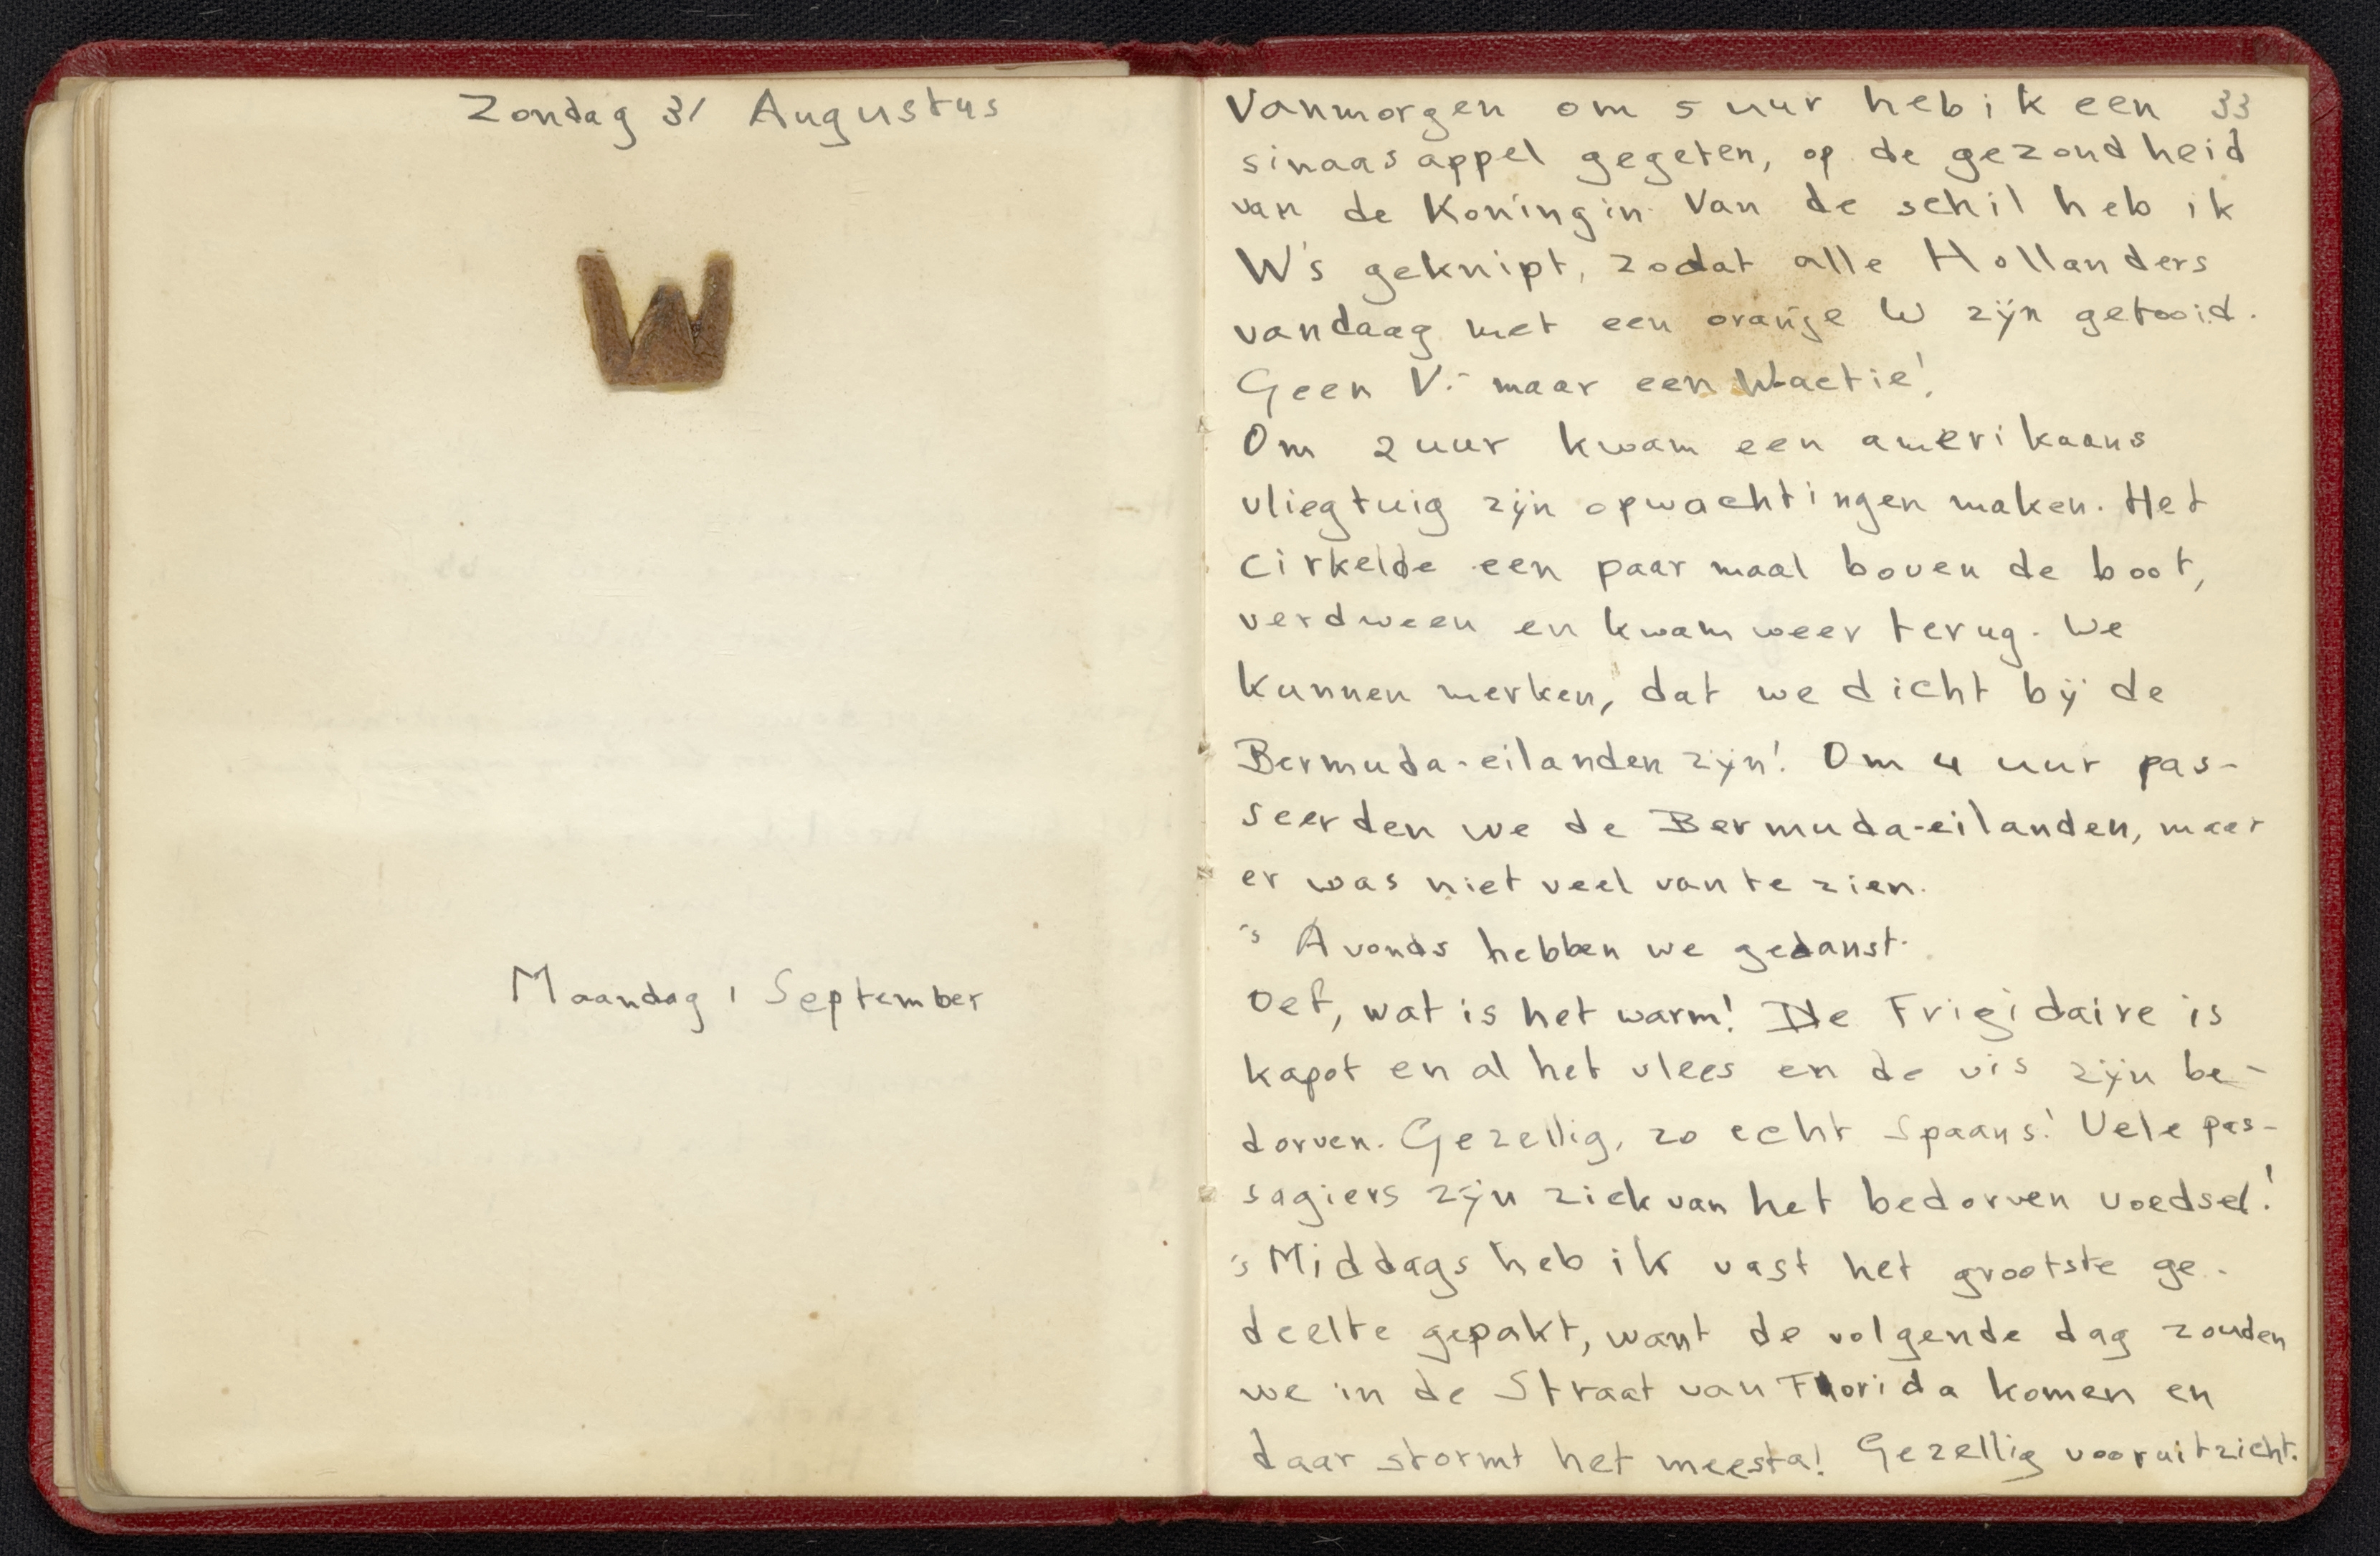 Zondag 31 Augustus
Maandag 1 September
33
Vanmorgen om 5 uur heb ik een
sinaasappel gegeten, op de gezondheid
van de Koningin. Van de schil heb ik
W's geknipt, zodat alle Hollanders
vandaag met een oranje W zijn getooid.
Geen V.- maar een W-actie!
Om 2 uur kwam een amerikaans
vliegtuig zijn opwachtingen maken. Het
cirkelde een paar maal boven de boot,
verdween en kwam weer terug. We
kunnen merken, dat we dicht bij de
Bermuda-eilanden zijn! Om 4 uur pas-
seerden we de Bermuda-eilanden, maar
er was niet veel van te zien.
's Avonds hebben we gedanst.
Oef, wat is het warm! De Frigidaire is
kapot en al het vlees en de vis zijn be-
dorven. Gezellig, zo echt Spaans! Vele pas-
sagiers zijn ziek van het bedorven voedsel!
's Middags heb ik vast het grootste ge-
deelte gepakt, want de volgende dag zouden
we in de Straat van Florida komen en
daar stormt het meesta! Gezellig vooruitzicht.